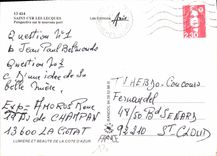 13 414
SAINT CYR LES LECQUES
Perspective sur le nouveau port
Les Editions
Question N°1
b Jean Paul Belmondo
Question N°2
c D'une idée de sa
Belle Mère.
Exp- AMOROS Rene
Av De CHAMPAN
13600 LA CIOTAT
LUMIERE ET BEAUTE DE LA COTE D'AZUR
Concours
Fernandel
48/50 Bd SENARD
92210 ST CLOUD
FRANCE